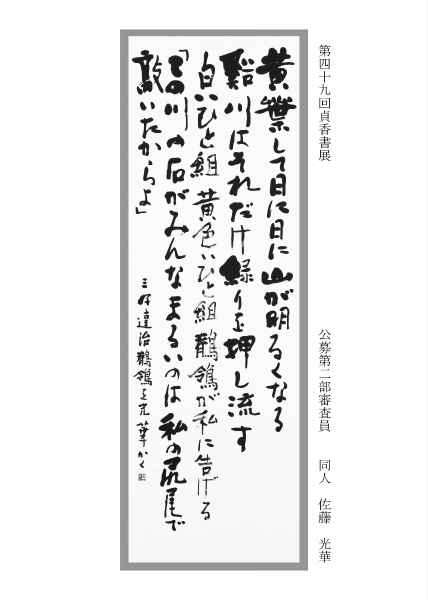 第四十九回貞香書展　公募第二部審査員　同人　佐藤　光華
黄葉して日に日に山が明るくなる
谿川はそれだけ緑りを押し流す
白いひと組黄色いひと組鶺鴒が私に告げる
「この川の石がみんなまるいのは私の尻尾で
敲いたからよ」
三好達治鶺鴒を光華かく